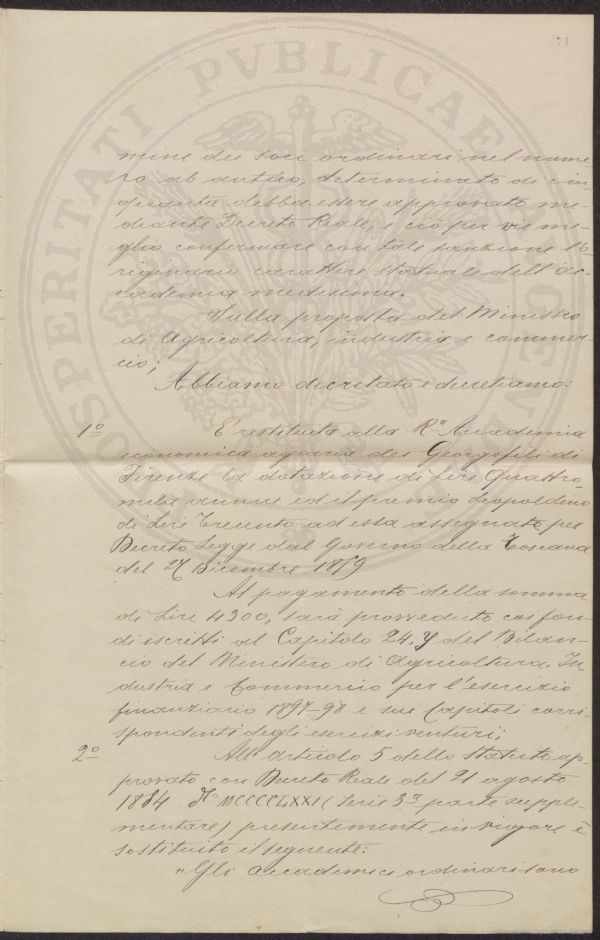 PROSPERITATI PVBLICAE AVGENDAE
mine dei soci ordinari nel nume-
ro ab antico, determinato di cin-
quanta debba essere approvato me-
diante Decreto Reale, e ciò per vie me-
glio confermare con tale sanzione l'o-
riginario carattere Statuale dell'Ac-
cademia medesima.
Sulla proposta del Ministro
di Agricoltura, industria e commer-
cio;
Abbiamo decretato e decretiamo:
1º E restituita alla Rª Accademia
economica agraria dei Georgofili di
Firenze la dotazione di Lire Quattro-
mila annue ed il premio Leopoldino
di Lire Trecento ad essa assegnato per
Decreto Legge dal Governo della Toscana
del 27 Dicembre 1859
Al pagamento della somma
di Lire 4300, sarà provveduto coi fon-
di iscritti al Capitolo 24. del Bilan-
cio del Ministero di Agricoltura, In-
dustria e Commercio per l'esercizio
finanziario 1897-98 e sui Capitoli corri-
spondenti degli esercizi venturi;
2º All'articolo 5 dello Statuto ap-
provato con Decreto Reale del 21 agosto
1884 Nº MCCCCLXXI (Serie 3ª parte supple-
mentare) presentemente in vigore è
sostituito il seguente:
"Gli Accademici ordinari sono